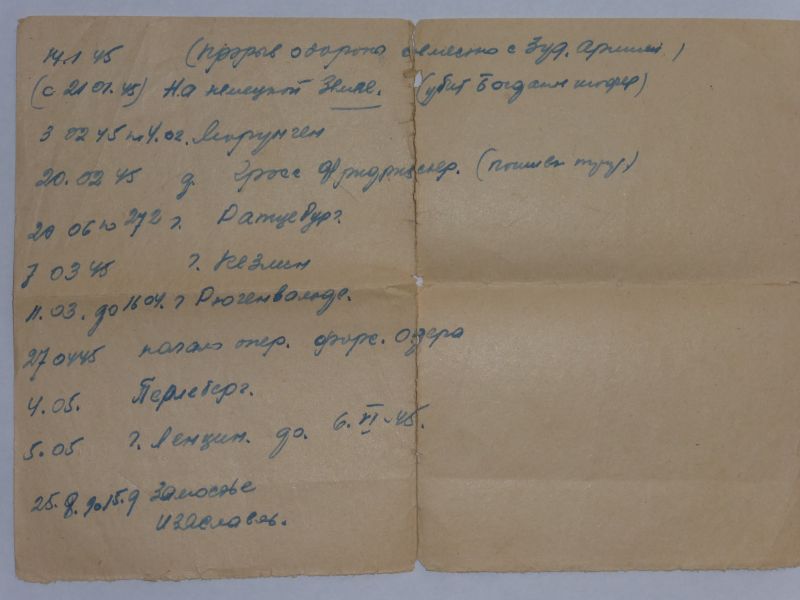 14.1 45 (прорыв обороны совместно с 3 уд. армией)
(с 21 01. 45) На немецкой Земле. (убит Богдан шофер)
3 02 45 по 4. 02. Морунген
20. 02 45 д. Гросс
20 06 по 27 2 г. Ратцебург.
7 03 45 г. Кезлин
11. 03. до 16 04. г Рюгенвальде.
27 04 45 начало опер. форс. Одера
4. 05. Перлеберг.
5. 05 г. Ленцин. до. 6. VI - 45.
25. 8. до 15. 9 Замостье
Изяславль.